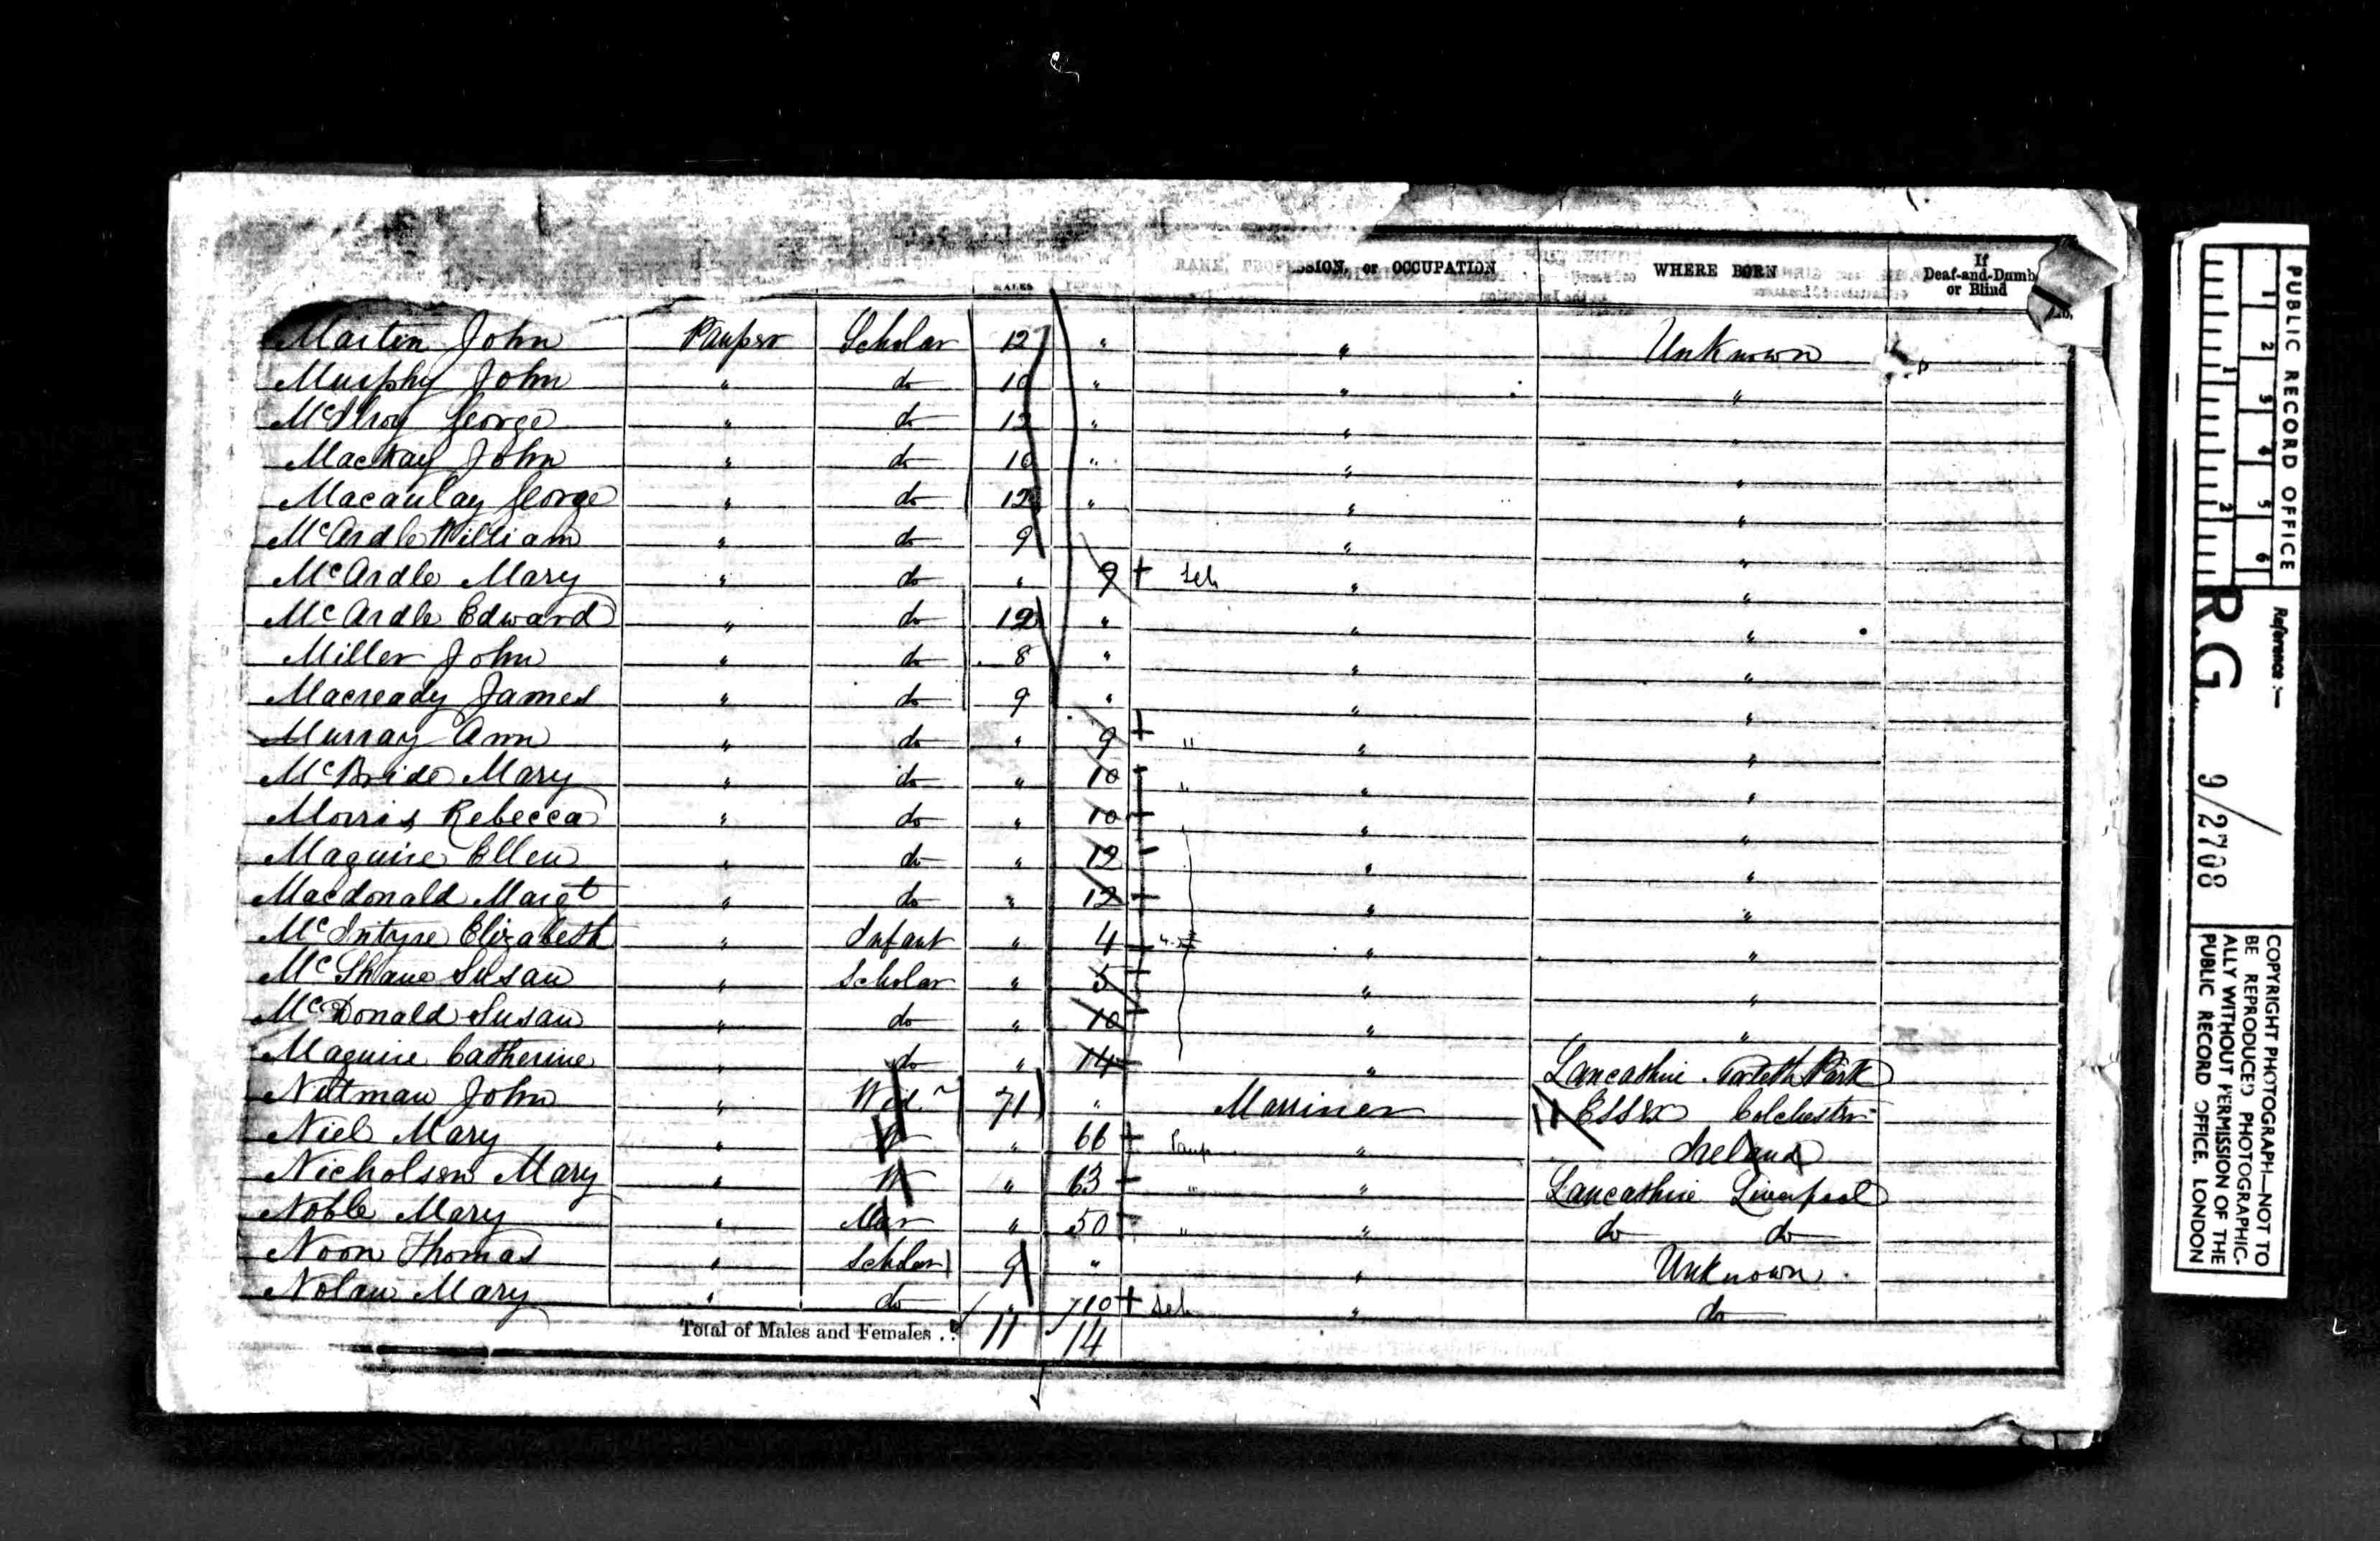 RANK, PROFESSION, or OCCUPATION WHERE BORN If Deaf-and-Dumb or Blind
MALES
Martin John Pauper Scholar 12 " " Unknown
Murphy John " do 10 " " "
McIlroy George " do 12 " " "
Mackay John " do 10 " " "
Macaulay George " do 12 " " "
McArdle William " do 9 " "
McArdle Mary " do " 9 + Sch " "
McArdle Edward " do 12 " " "
Miller John " do 8 " " "
Macready James " do 9 " " "
Murray Ann " do " 9 + " " "
McBride Mary " do " 10 + " " "
Morris Rebecca " do " 10 + " "
Maguire Ellen " do " 12 " "
Macdonald Margt " do " 12 + " "
McIntyre Elizabeth " Infant " 4 + " "
McShane Susan " Scholar " 5 + " "
McDonald Susan " do " 10 + " "
Maguire Catherine " do " 14 " Lancashire Toxteth Park
Nutman John " Widr 71 " Marriner Essex Colchester
Niel Mary " W " 66 + Paup " Ireland
Nicholson Mary " W " 63 " " Lancashire Liverpool
Noble Mary " Mar " 50 + " " do do
Noon Thomas " Scholar 9 " " Unknown
Nolan Mary " do " 10 + Sch " do
Total of Males and Females .. 11 14
PUBLIC RECORD OFFICE
1 2 3 4 5 6
1 2
Reference :-
R.G. 9/2708
COPYRIGHT PHOTOGRAPH—NOT TO
BE REPRODUCED PHOTOGRAPHIC-
ALLY WITHOUT PERMISSION OF THE
PUBLIC RECORD OFFICE, LONDON